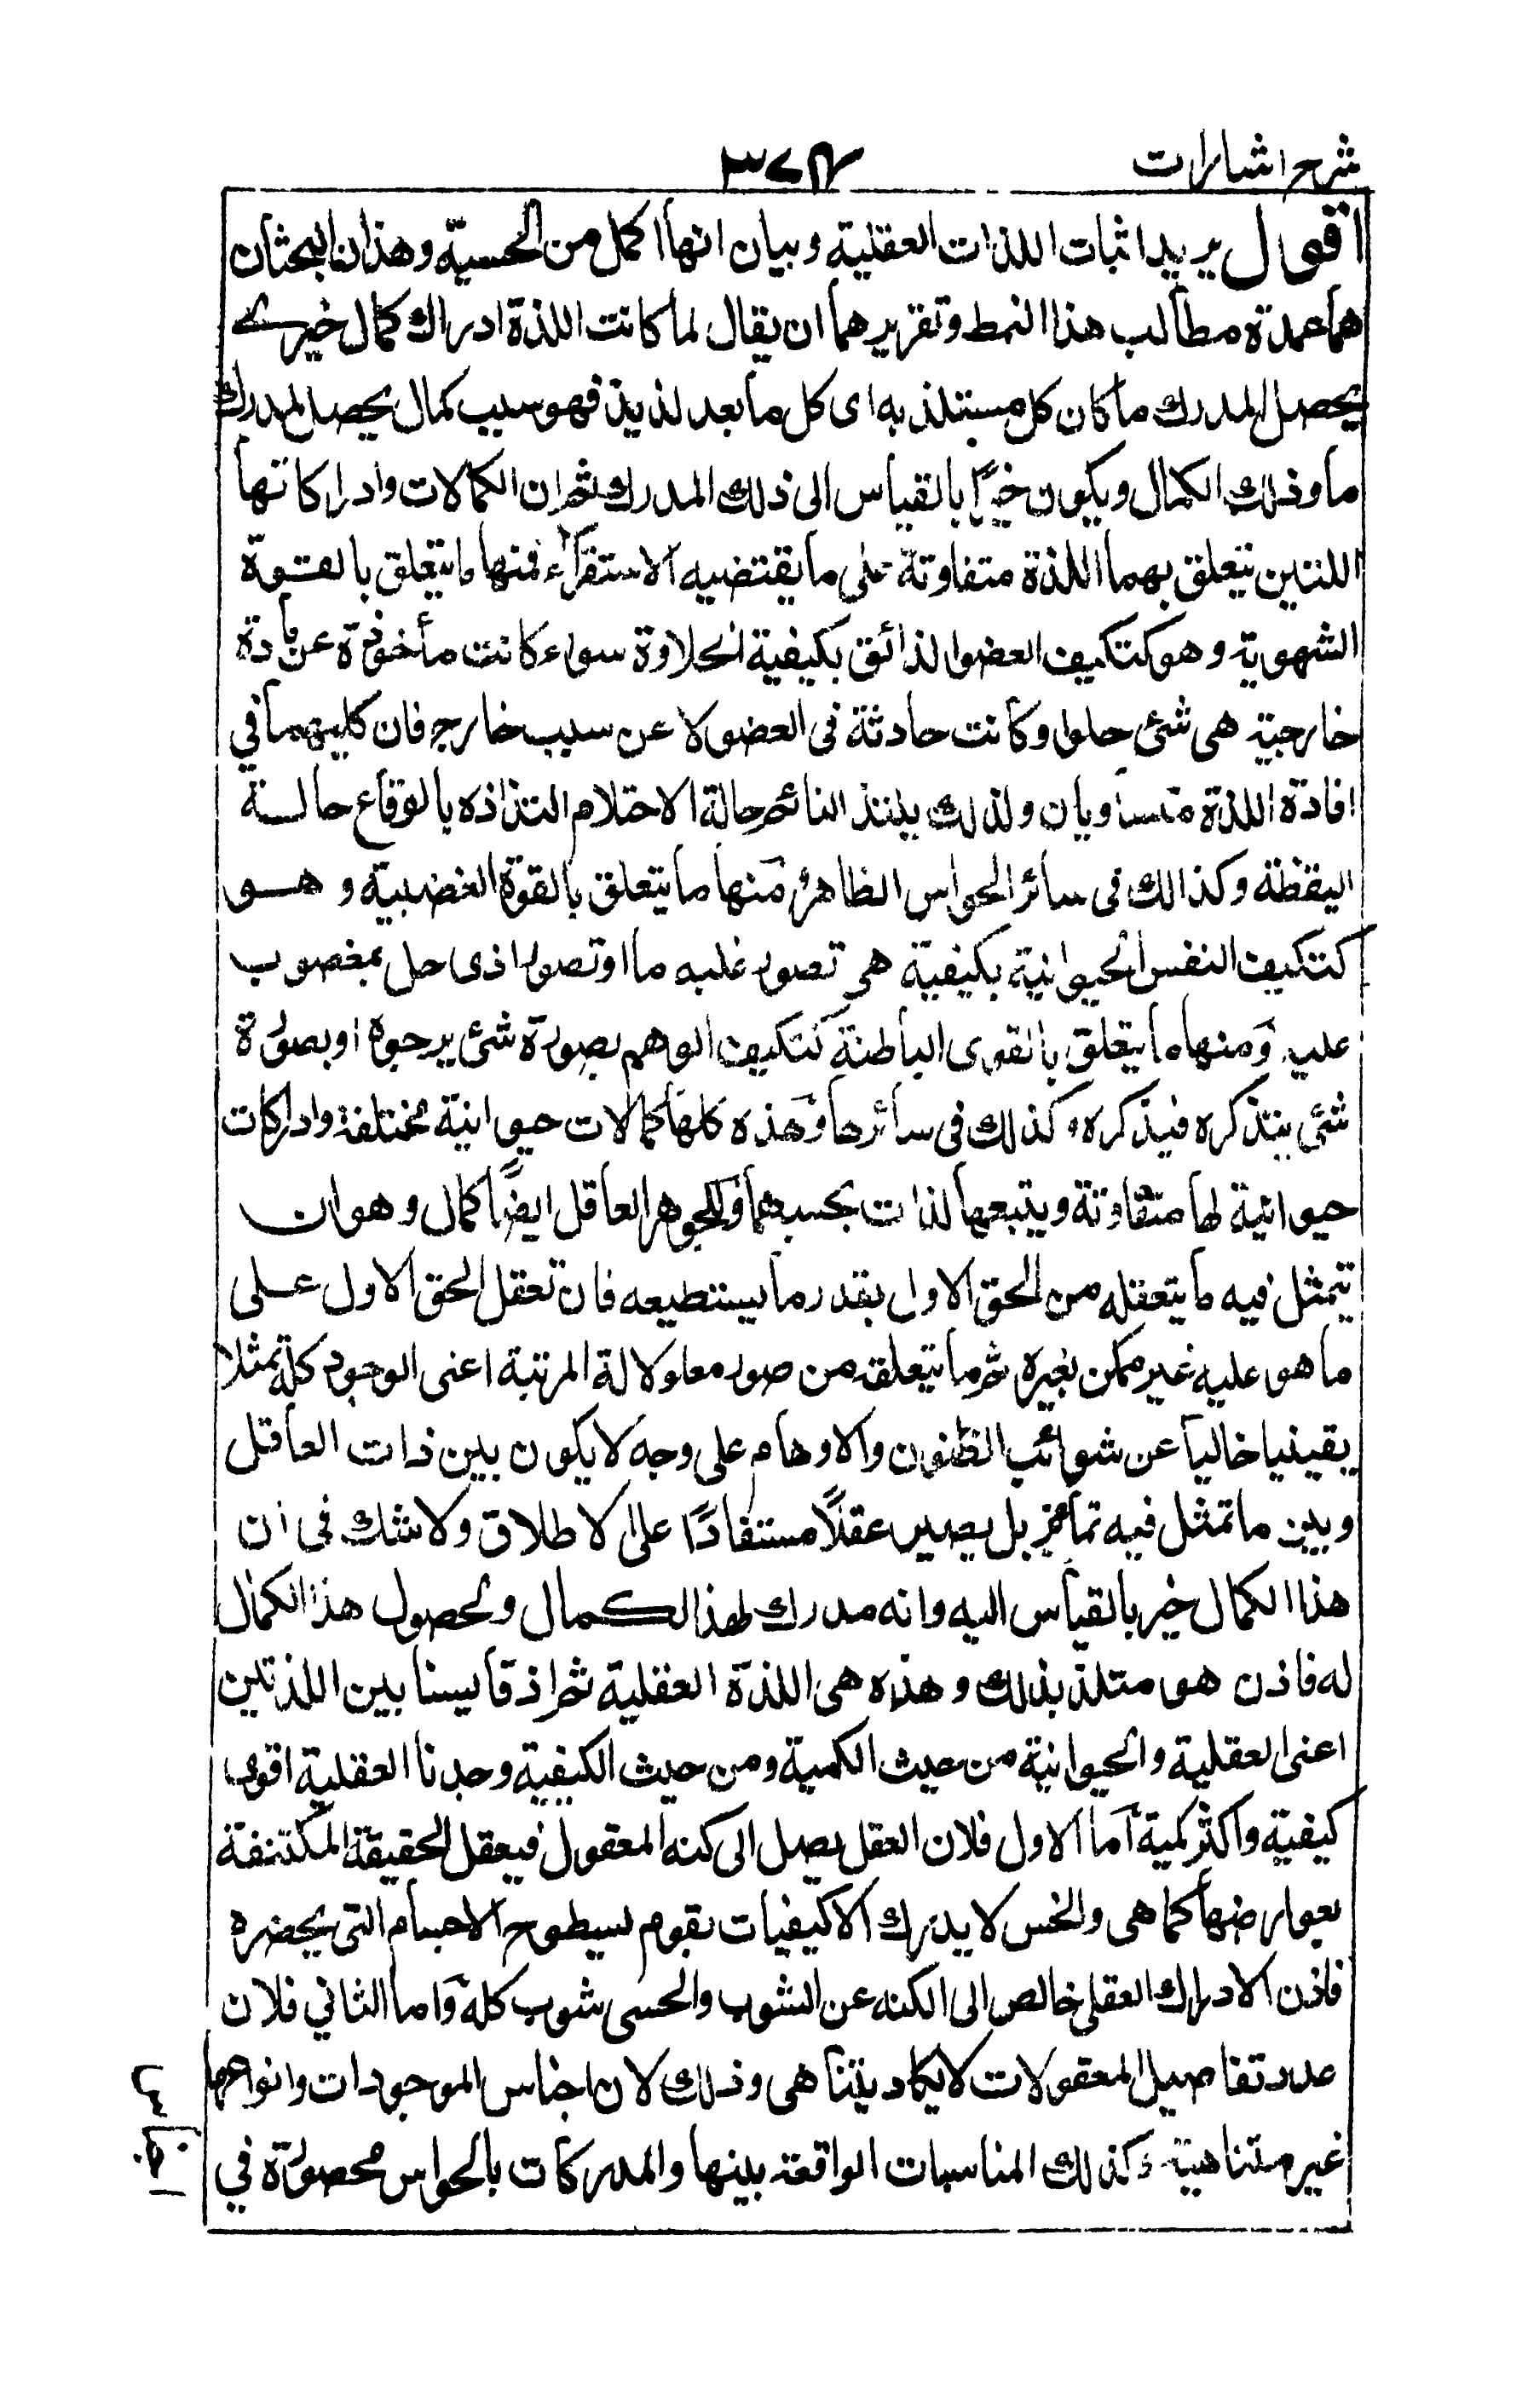 شرح اشارات ٣٧٤
اقول يريد اثبات اللذات العقلية وبيان انها اكمل من الحسية وهذان البحثان
هما عمدة مطالب هذا النمط وتقريرهما ان يقال لما كانت اللذة ادراك كمال خيرى
يحصل لمدرك ما كان كل مستلذ به اى كل ما يعد لذيذ فهو سبب كمال يحصل لمدرك
ما وذلك الكمال ويكون خيرًا بالقياس الى ذلك المدرك ثم ان الكمالات وادراكاتها
اللتين يتعلق بهما اللذة متفاوتة على ما يقتضيه الاستقراء فمنها ما يتعلق بالقوة
الشهوية وهو كتكيف العضو الذائق بكيفية الحلاوة سواء كانت مأخوذة عن مادة
خارجية هى شئ حلو او كانت حادثة فى العضو لا عن سبب خارج فان كليهما في
افادة اللذة متساويان ولذلك يلتذ النائم حالة الاحتلام التذاذه بالوقاع حالة
اليقظة وكذالك فى سائر الحواس الظاهرة ومنها ما يتعلق بالقوة الغضبية وهو
كتكيف النفس الحيوانية بكيفية هى تصور غلبه ما او تصور اذى حل بمغضوب
عليه ومنها ما يتعلق بالقوى الباطنة كتكيف الوهم بصورة شئ يرجوه او بصورة
شئ يتذكره فيذكره وكذلك فى سائرها وهذه كلها كمالات حيوانية مختلفة وادراكات
حيوانية لها متفاوتة ويتبعها لذات بحسبهما وللجوهر العاقل ايضًا كمال وهو ان
يتمثل فيه ما يتعقله من الحق الاول بقدر ما يستطيعه فان تعقل الحق الاول على
ما هو عليه غير ممكن لغيره ثم ما يتعلقه من صور معلولا له المرتبة اعنى الوجود كله تمثلا
يقينيا خاليا عن شوائب الظنون والاوهام على وجه لا يكون بين ذات العاقل
وبين ما تمثل فيه تمايز بل يصير عقلًا مستفادًا على الاطلاق ولا شك فى ان
هذا الكمال خير بالقياس اليه وانه مدرك لهذا الكمال ولحصول هذا الكمال
له فاذن هو متلذ بذلك وهذه هى اللذة العقلية ثم اذ قايسنا بين اللذتين
اعنى العقلية والحيوانية من حيث الكمية ومن حيث الكيفية وجدنا العقلية اقوى
كيفية واكثر كمية اما الاول فلان العقل يصل الى كنه المعقول فيعقل الحقيقة المكتنفة
بعوارضها كما هى والحس لا يدرك الا كيفيات تقوم بسطوح الاجسام التى يحضره
فاذن الادراك العقلى خالص الى الكنه عن الشوب والحسى شوب كله واما الثاني فلان
عدد تفاصيل المعقولات لا يكاد يتناهى وذلك لان اجناس الموجودات وانواعها
غير متناهية وكذلك المناسبات الواقعة بينها والمدركات بالحواس محصورة في